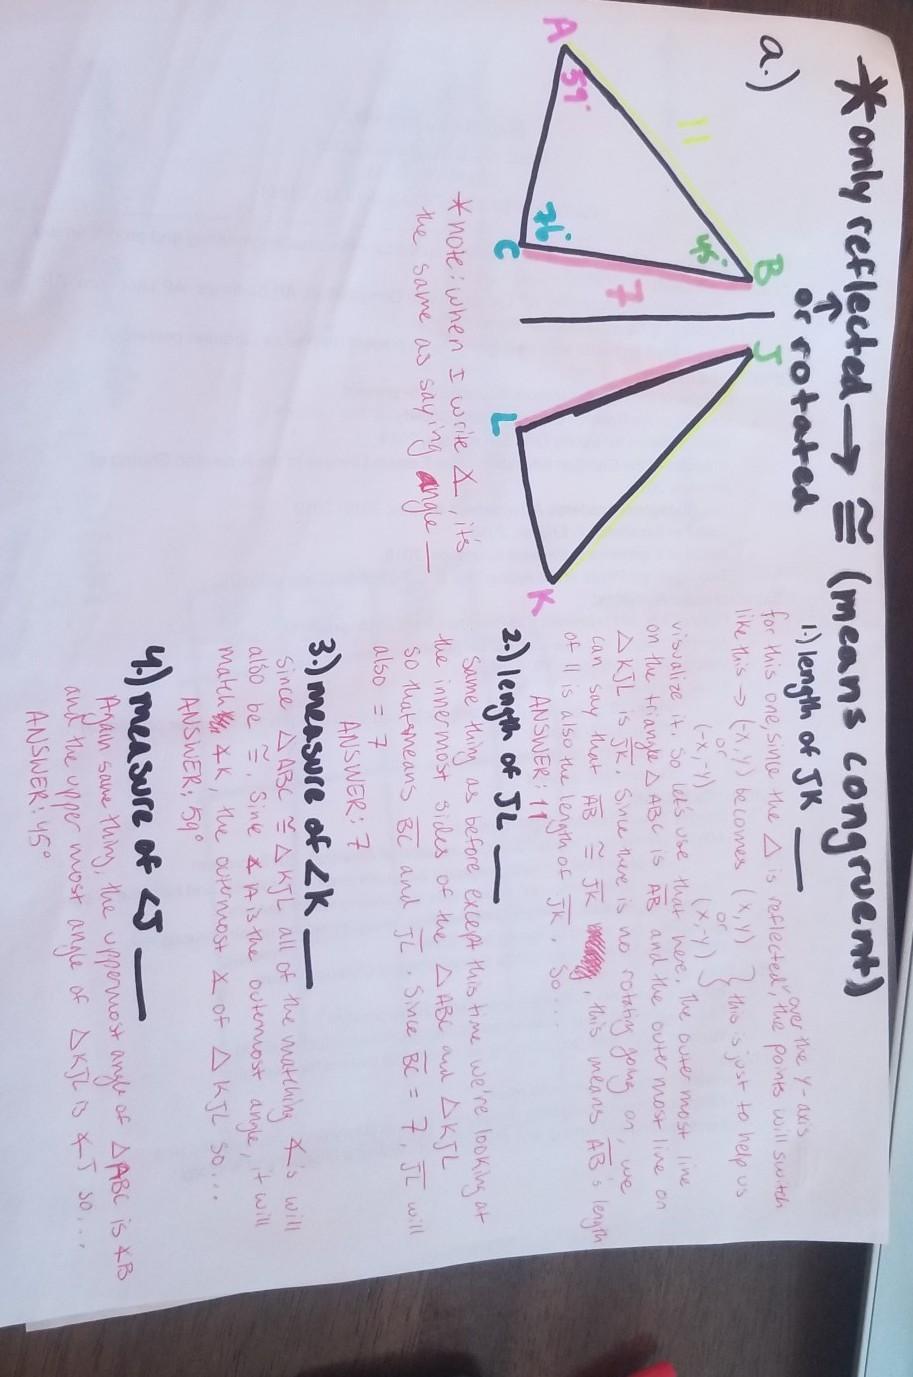 *only reflected → ≅ (means congruent)
↑
or rotated
a.)
A
59°
11
B
45°
76°
C
7
J
L
K
*note: when I write ∡, it's
the same as saying angle __
1.) length of JK ___
for this one, since the △ is reflected over the y-axis, the points will switch
like this → (-x, y) becomes (x, y) } this is just to help us
or or
(-x, -y) (x, -y)
visualize it. So let's use that here. The outermost line
on the triangle △ABC is AB and the outermost line on
△KJL is JK. Since there is no rotating going on, we
can say that AB ≅ JK, this means AB's length
of 11 is also the length of JK. So...
ANSWER: 11
2.) length of JL ___
Same thing as before except this time we're looking at
the innermost sides of the △ABC and △KJL
so that means BC and JL. Since BC = 7, JL will
also = 7
ANSWER: 7
3.) measure of ∠K ___
Since △ABC ≅ △KJL all of the matching ∡'s will
also be ≅. Sine ∡A is the outermost angle, it will
match ∡K, the outermost ∡ of △KJL so...
ANSWER: 59°
4.) measure of ∠J ___
Again same thing, the uppermost angle of △ABC is ∡B
and the upper most angle of △KJL is ∡J so...
ANSWER: 45°